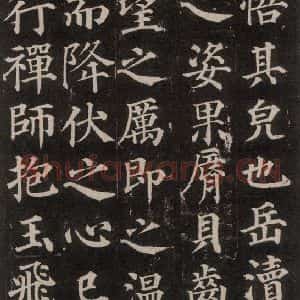 悟其皃也岳瀆
之姿果脣貝齒
望之厲即之溫
而降伏之心已
行禪師抱玉飛